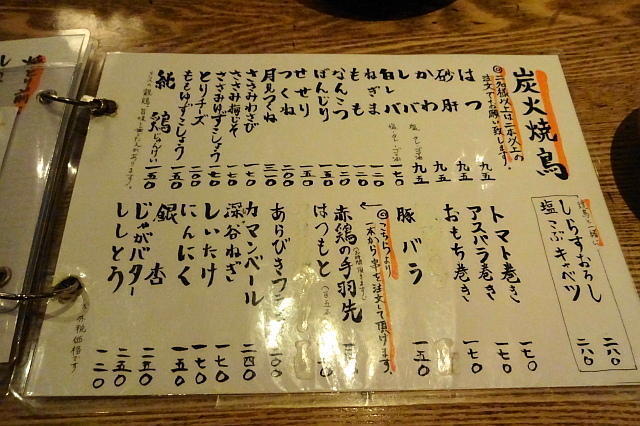 炭火焼鳥
◎二名様以上は二本以上の
注文でお願い致します。
はつ 九五
砂肝 九五
かわ 九五
レバ 九五
白レバ 一七〇
ねぎま 一二〇
もも 一二〇
なんこつ 一二〇
ぼんじり 一五〇
せせり 一五〇
つくね 二〇〇
月見つくね
ささみわさび 一五〇
ささみ梅しそ 一七〇
ささみゆずこしょう 一七〇
とりチーズ 二〇〇
ももゆずこしょう 一五〇
純鶏 一五〇
しらすおろし 二八〇
塩こぶキャベツ 二八〇
トマト巻き 一七〇
アスパラ巻き 一七〇
おもち巻き 一七〇
豚バラ 一五〇
◎こちらより
一本から串を注文して頂けます。
赤鶏の手羽先
はつもと
あらびき
カマンベール 二四〇
深谷ねぎ 一七〇
しいたけ 一七〇
にんにく 一五〇
銀杏 二五〇
じゃがバター 二五〇
ししとう 一二〇
税価格です